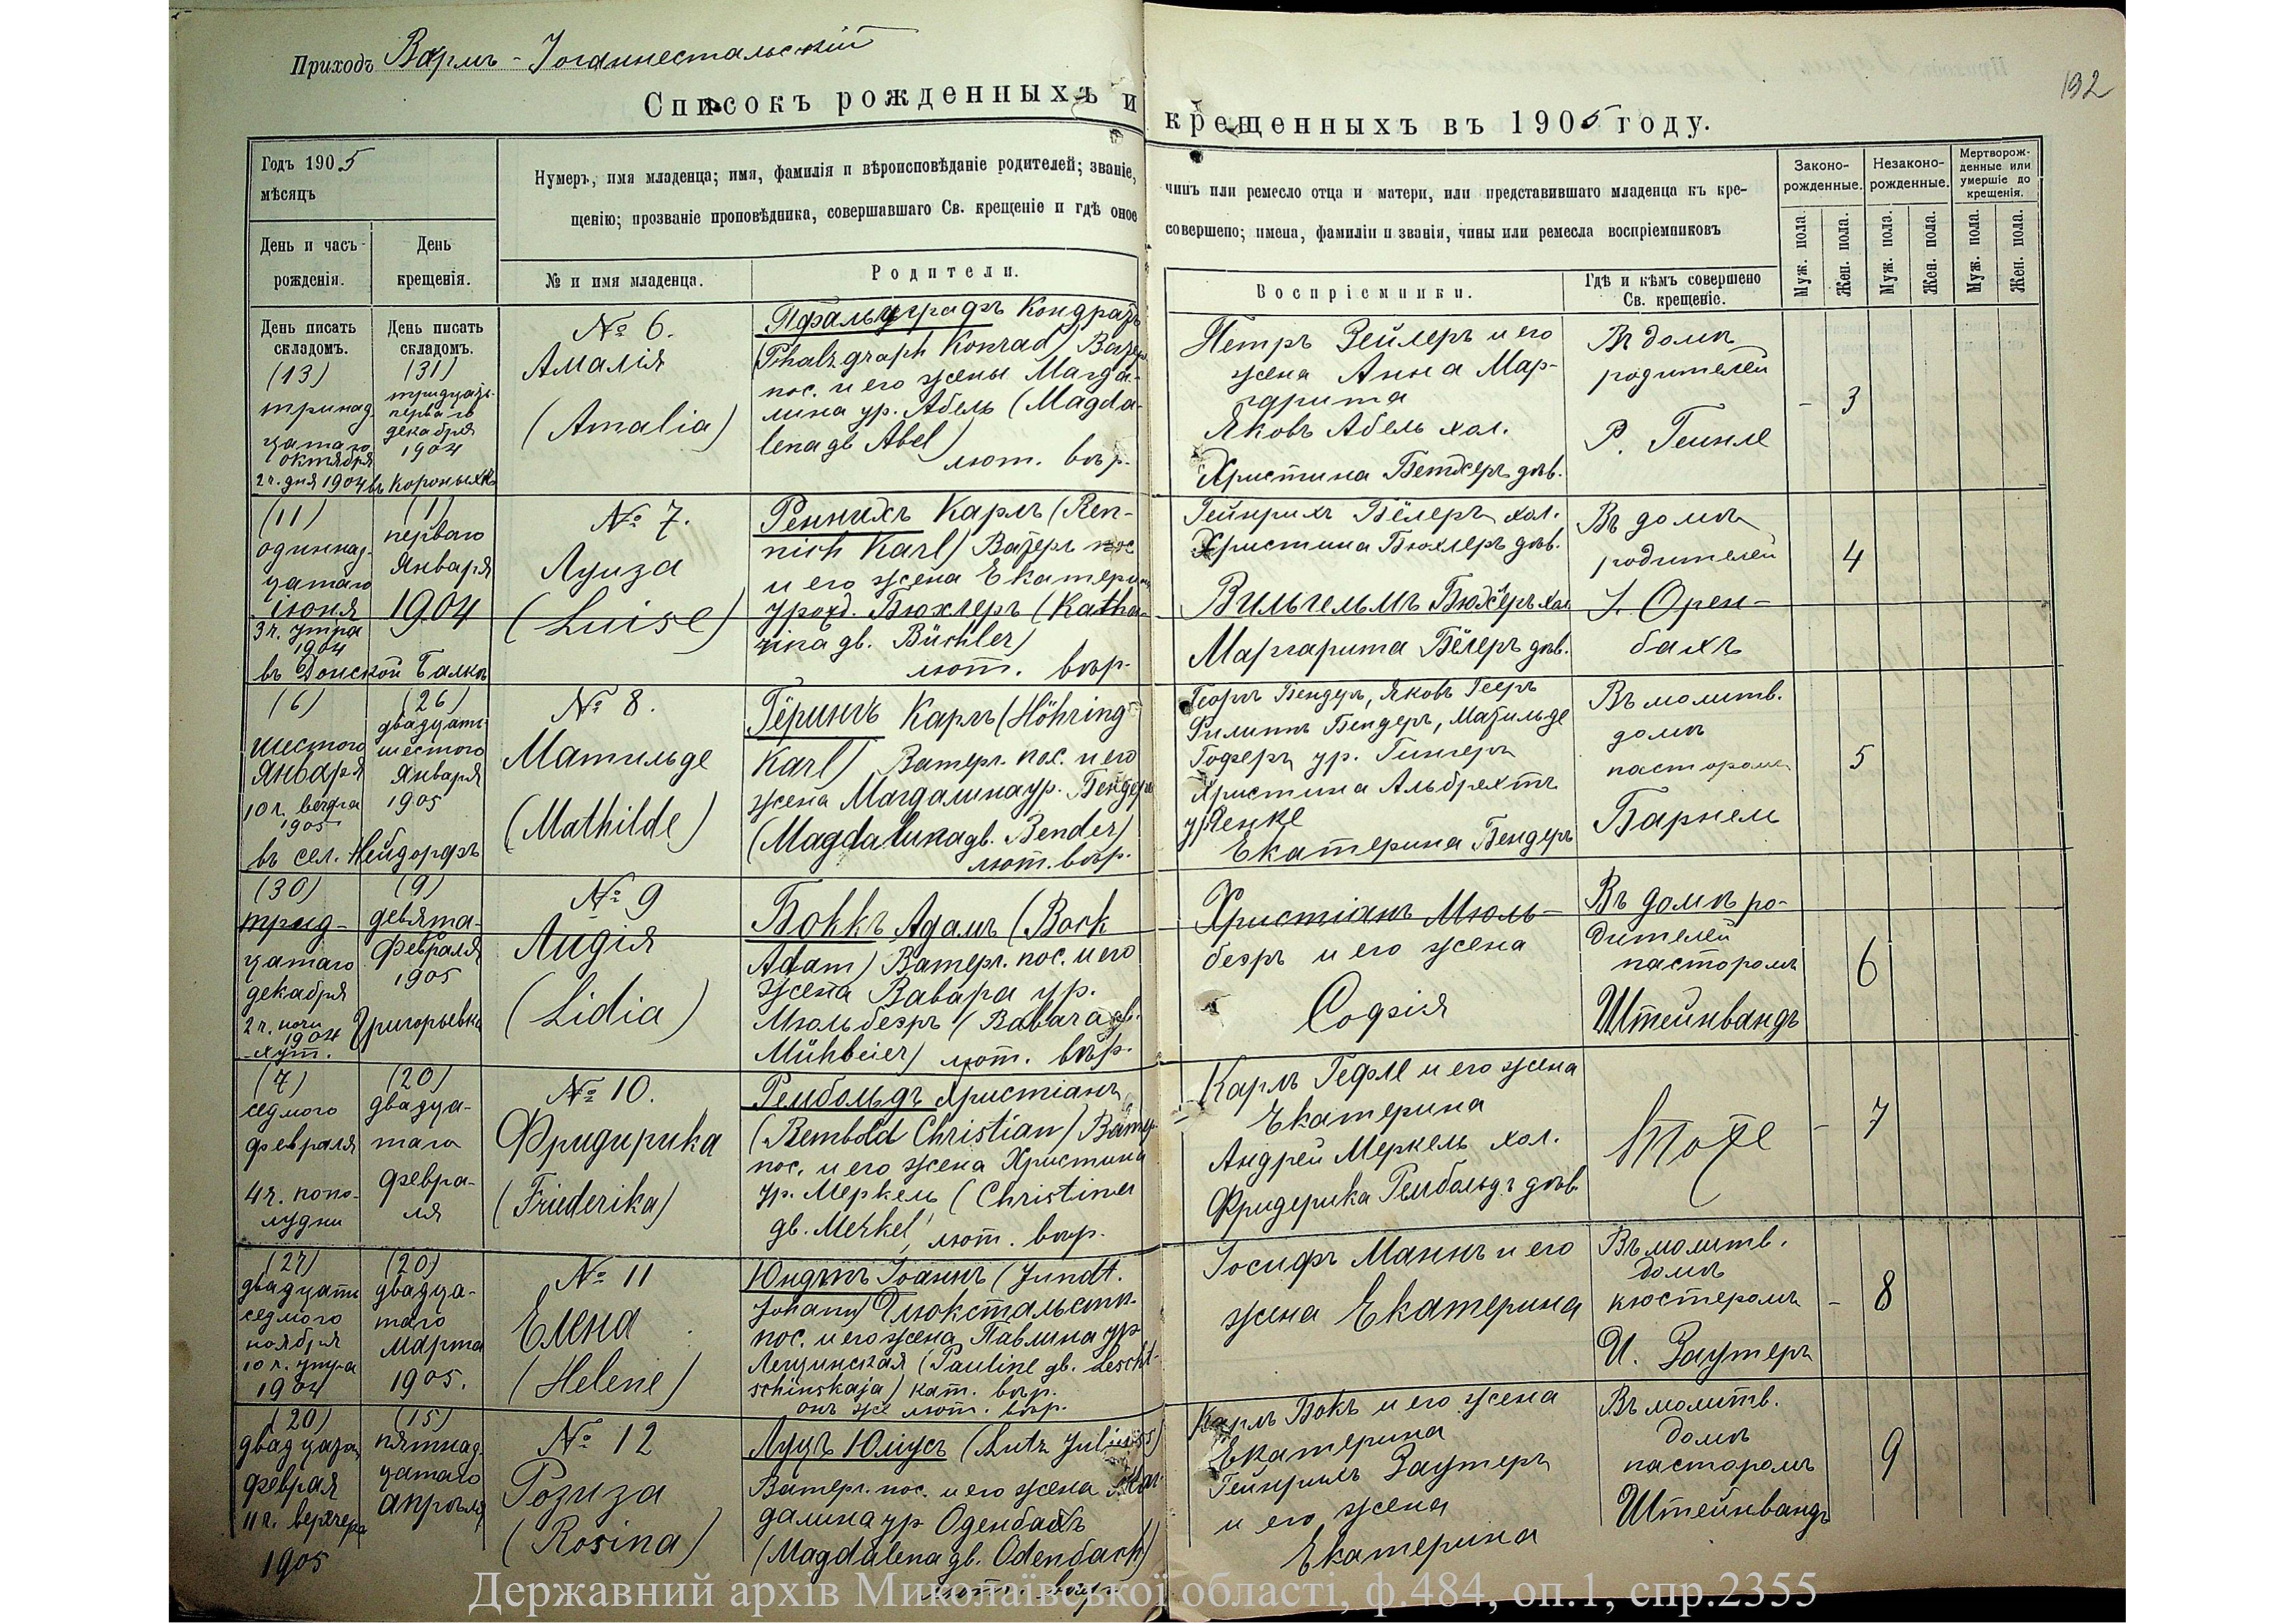 Приходъ Вормъ-Іоганнестальскій
132
Списокъ рожденныхъ и крещенныхъ въ 1905 году.
Годъ 1905
мѣсяцъ
День и часъ
рожденія.
День
крещенія.
Нумеръ, имя младенца; имя, фамилія и вѣроисповѣданіе родителей; званіе,
щенію; прозваніе проповѣдника, совершавшаго Св. крещеніе и гдѣ оное
№ и имя младенца.
Родители.
чинъ или ремесло отца и матери, или представившаго младенца къ кре-
совершено; имена, фамиліи и званія, чины или ремесла воспріемниковъ
Воспріемники.
Гдѣ и кѣмъ совершено
Св. крещеніе.
Законо-
рожденные.
Незаконо-
рожденные.
Мертворож-
денные или
умершіе до
крещенія.
Муж. пола.
Жен. пола.
Муж. пола.
Жен. пола.
Муж. пола.
Жен. пола.
День писать
складомъ.
(13)
тринад
цатаго
октября
2 ч. дня 1904
День писать
складомъ.
(31)
тридцать
перваго
декабря
1904
№ 6.
Амалія
(Amalia)
Пфальцграфъ Кондратъ
(Phalzgraph Konrad) Ватер.
пос. и его жены Магда-
лина ур. Абель (Magda-
lena дв Abel)
лют. вѣр.
Петръ Зейлеръ и его
жена Анна Мар-
гарита
Яковъ Абель хол.
Христина Бетхеръ дѣв.
Въ домѣ
родителей
3
(11)
одиннад-
цатаго
іюня
3 ч. утра
1904
въ Донской Балкѣ
(1)
перваго
Января
1904
№ 7.
Луиза
(Luise)
Реннихъ Карлъ (Ren-
nich Karl) Ватерл. пос
и его жена Екатерин
урожд. Бюхлеръ (Katha-
rina дв. Büchler)
лют. вѣр.
Гейнрихъ Бёлеръ хол.
Христина Бюхлеръ дѣв.
Вильгельмъ Бюхлеръ хол
Маргарита Бёлеръ дѣв.
Въ домѣ
родителей
4
(6)
шестого
Января
10 ч. вечера
1905
въ сел. Нейдорфъ
(26)
двадцать
шестого
Января
1905
№ 8.
Матильде
(Mathilde)
Гёрингъ Карлъ (Höhring
Karl) Ватерл. пос. и его
жена Магдалина ур. Бендеръ
(Magdalena дв. Bender)
лют. вѣр.
Георгъ Бендеръ, Яковъ
Филиппъ Бендеръ, Матильде
Гоферъ ур.
Христина Альбрехтъ
ур. Яенке
Екатерина Бендеръ
Въ молитв.
домѣ
пасторомъ
5
(30)
трид-
цатаго
декабря
2 ч. ночи
1904
хут. Григорьевка
(9)
девята-
го
Февраля
1905
№ 9
Лидія
(Lidia)
Боккъ Адамъ (Bock
Adam) Ватерл. пос. и его
жена Вавара ур.
Мюльбеэръ (Bavara дв.
Mühbeier) лют. вѣр.
Христіанъ Мюль-
беэръ и его жена
Софія
Въ домѣ ро-
дителей
пасторомъ
Штейнвандъ
6
(7)
седмого
февраля
4 ч. попо-
лудни
(20)
двадца-
таго
февра-
ля
№ 10.
Фридирика
(Friederika)
Рембольдъ Христіанъ
(Rembold Christian) Ватер
пос. и его жена Христина
ур. Меркель (Christina
дв. Merkel) лют. вѣр.
Карлъ Гефле и его жена
Екатерина
Андрей Меркель хол.
Фридерика Рембольдъ дѣв.
Тоже
7
(27)
двадцать
седмого
ноября
10 ч. утра
1904
(20)
двадца-
таго
марта
1905.
№ 11
Елена
(Helene)
Юндтъ Іоаннъ (Jundt.
Johann) Глюкстальскій
пос. и его жена Павлина ур
Лещинская (Pauline дв. Lescht-
schinskaja) кат. вѣр.
онъ же лют. вѣр.
Іосифъ Маннъ и его
жена Екатерина
Въ молитв.
домѣ
кюстеромъ
И. Заутеръ
8
(20)
двадцатаго
февраля
11 ч. вечера
1905
(15)
пятнад
цатаго
апрѣля
№ 12
Розиза
(Rosina)
Луцъ Юліусъ (Lutz Julius)
Ватерл. пос. и его жена Маг
далина ур Оденбахъ
(Magdalena дв. Odenbach)
лют. вѣр
Карлъ Бокъ и его жена
Екатерина
Гейнрихъ Заутеръ
и его жена
Екатерина
Въ молитв.
домѣ
пасторомъ
Штейнвандъ
9
Державний архів Миколаївської області, ф.484, оп.1, спр.2355